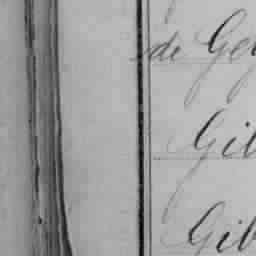 de Gey
Gib
Gib